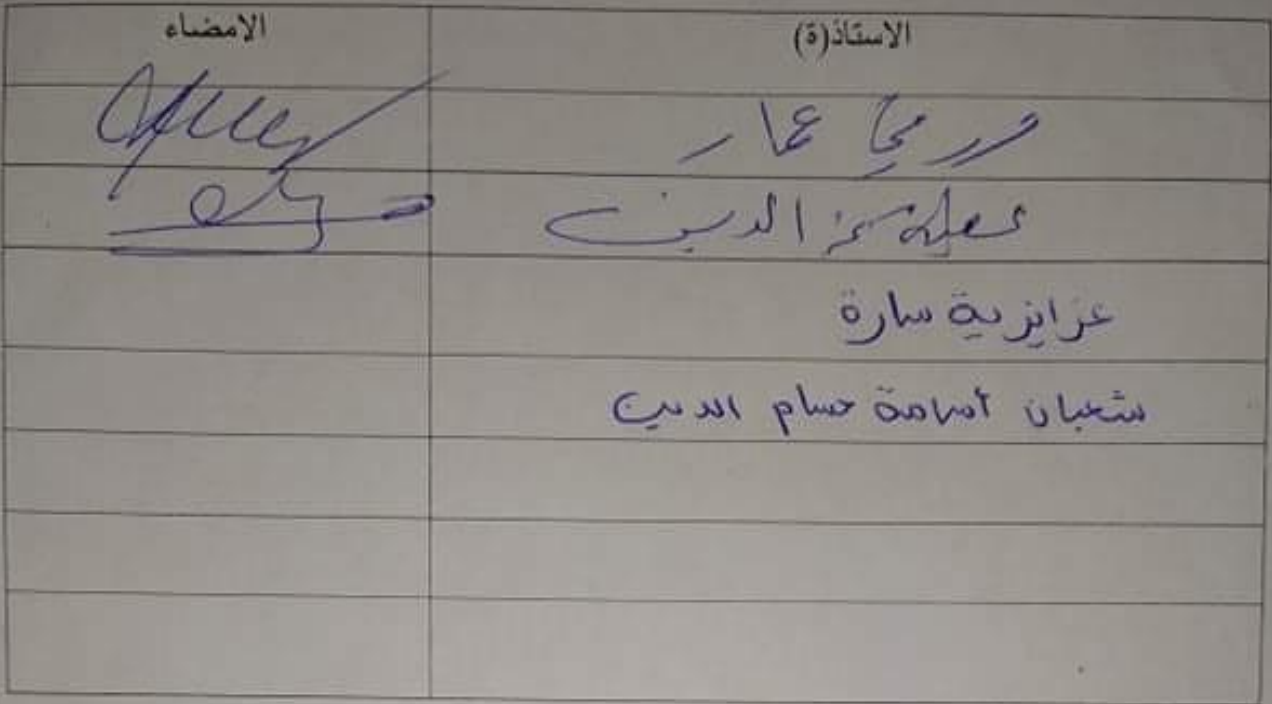 الاستاذ(ة) الامضاء
عمار
عز الدين
عزايزية سارة
شعبان أسامة حسام الدين